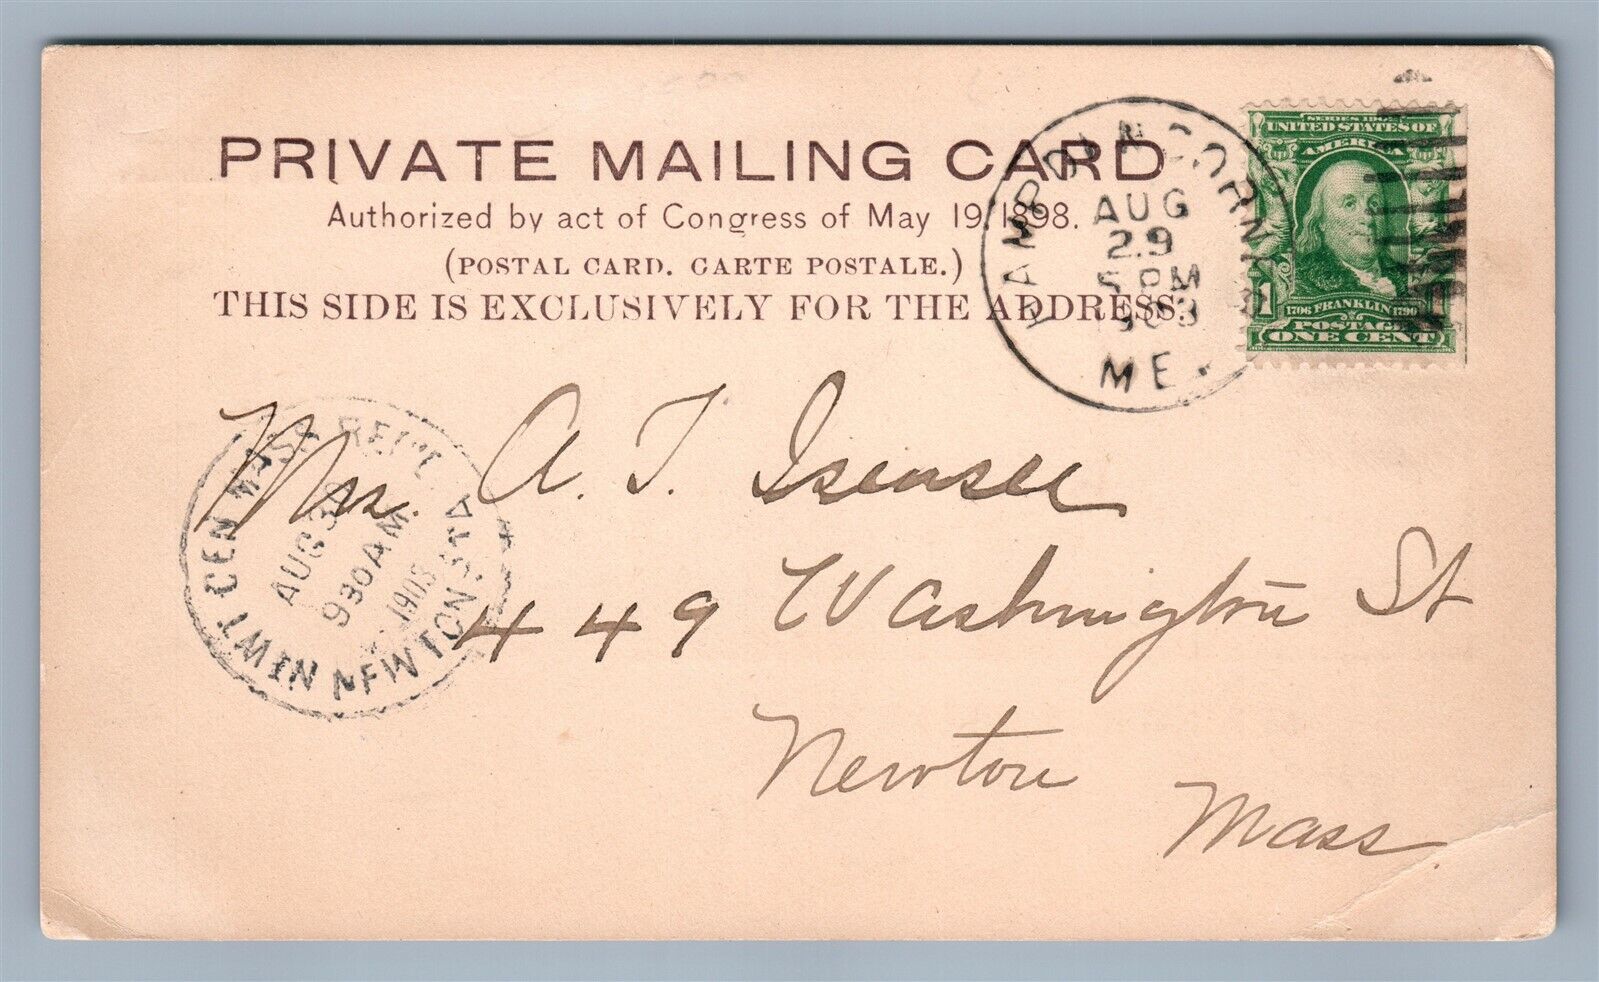 PRIVATE MAILING CARD
Authorized by act of Congress of May 19, 1898.
(POSTAL CARD. CARTE POSTALE.)
THIS SIDE IS EXCLUSIVELY FOR THE ADDRESS.
AUG
29
5 PM
1903
ME.
UNITED STATES OF
AMERICA
1706 FRANKLIN 1790
POSTAGE
1 ONE CENT
Mrs. A. T. Isensee
449 Washington St
Newton
Mass.
MASS REC'D
AUG 30
930 AM
1903
NEWTON STA